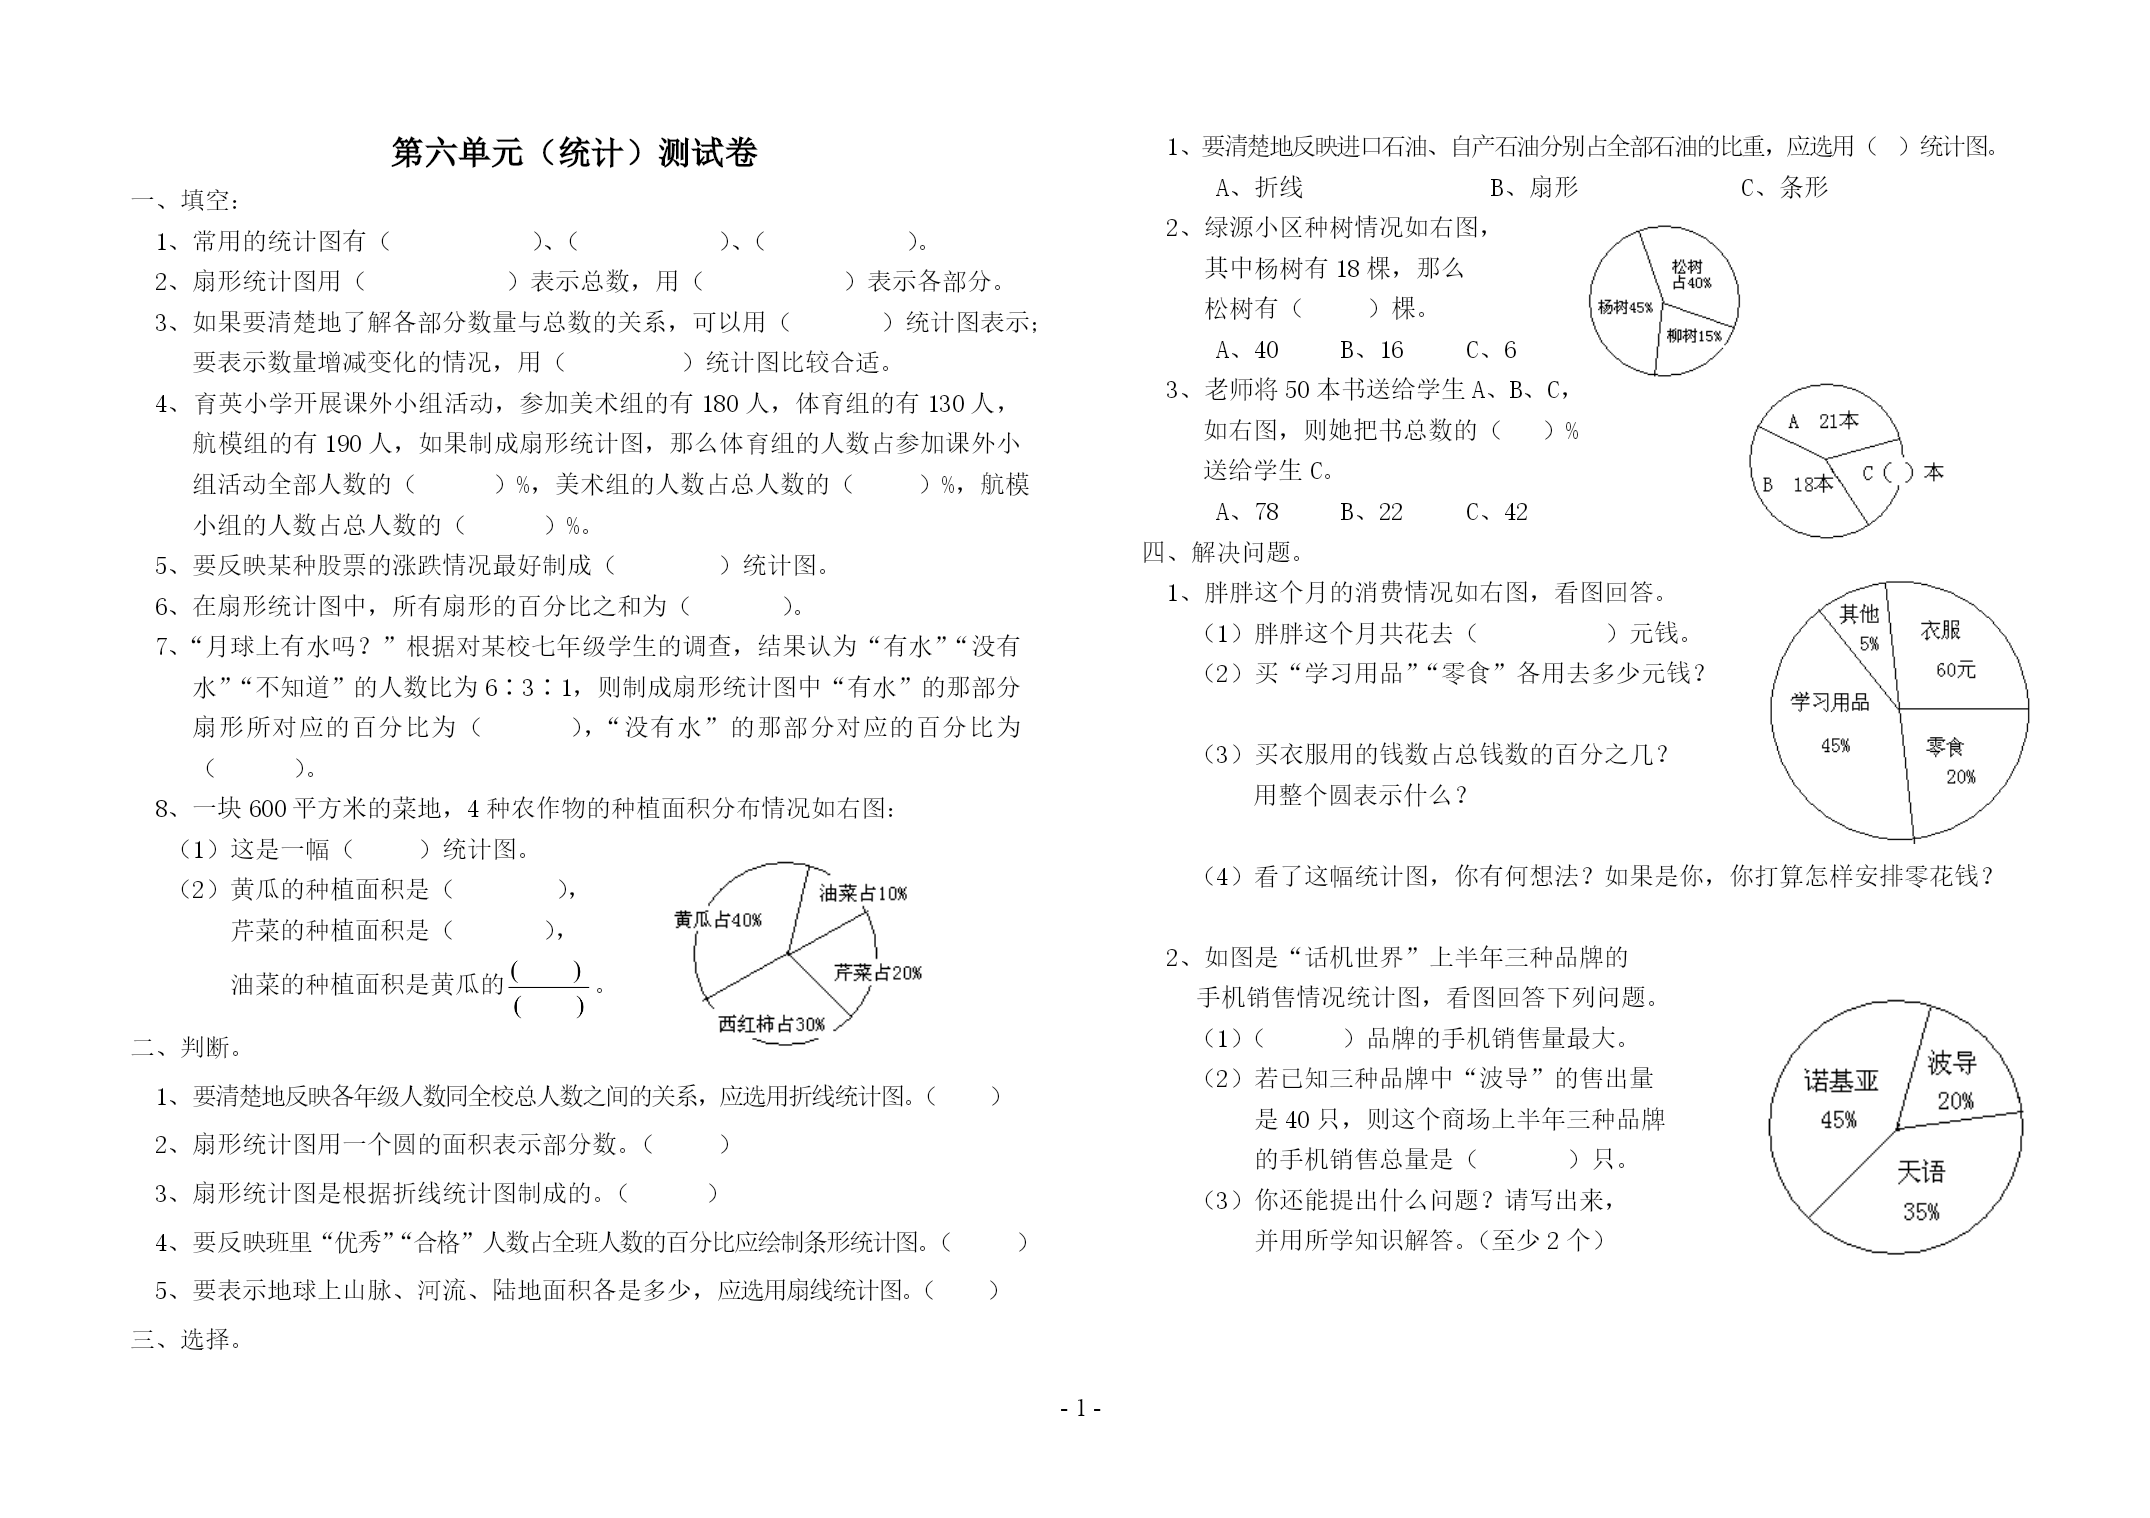 第六单元（统计）测试卷
一、填空：
1、常用的统计图有（　　　）、（　　　）、（　　　）。
2、扇形统计图用（　　　）表示总数，用（　　　）表示各部分。
3、如果要清楚地了解各部分数量与总数的关系，可以用（　　　）统计图表示；
要表示数量增减变化的情况，用（　　　）统计图比较合适。
4、育英小学开展课外小组活动，参加美术组的有 180 人，体育组的有 130 人，
航模组的有 190 人，如果制成扇形统计图，那么体育组的人数占参加课外小
组活动全部人数的（　　　）%，美术组的人数占总人数的（　　　）%，航模
小组的人数占总人数的（　　　）%。
5、要反映某种股票的涨跌情况最好制成（　　　）统计图。
6、在扇形统计图中，所有扇形的百分比之和为（　　　）。
7、“月球上有水吗？”根据对某校七年级学生的调查，结果认为“有水”“没有
水”“不知道”的人数比为 6∶3∶1，则制成扇形统计图中“有水”的那部分
扇形所对应的百分比为（　　　），“没有水”的那部分对应的百分比为
（　　　）。
8、一块 600 平方米的菜地，4 种农作物的种植面积分布情况如右图：
（1）这是一幅（　　　）统计图。
（2）黄瓜的种植面积是（　　　），
芹菜的种植面积是（　　　），
油菜的种植面积是黄瓜的(　　)/(　　)。
油菜占10%
黄瓜占40%
芹菜占20%
西红柿占30%
二、判断。
1、要清楚地反映各年级人数同全校总人数之间的关系，应选用折线统计图。（　　）
2、扇形统计图用一个圆的面积表示部分数。（　　）
3、扇形统计图是根据折线统计图制成的。（　　）
4、要反映班里“优秀”“合格”人数占全班人数的百分比应绘制条形统计图。（　　）
5、要表示地球上山脉、河流、陆地面积各是多少，应选用扇线统计图。（　　）
三、选择。
1、要清楚地反映进口石油、自产石油分别占全部石油的比重，应选用（　）统计图。
A、折线　　　B、扇形　　　C、条形
2、绿源小区种树情况如右图，
其中杨树有 18 棵，那么
松树有（　　）棵。
A、40　　B、16　　C、6
松树
占40%
杨树45%
柳树15%
3、老师将 50 本书送给学生 A、B、C，
如右图，则她把书总数的（　）%
送给学生 C。
A、78　　B、22　　C、42
A　21本
C（　）本
B　18本
四、解决问题。
1、胖胖这个月的消费情况如右图，看图回答。
（1）胖胖这个月共花去（　　　）元钱。
（2）买“学习用品”“零食”各用去多少元钱？
（3）买衣服用的钱数占总钱数的百分之几？
用整个圆表示什么？
（4）看了这幅统计图，你有何想法？如果是你，你打算怎样安排零花钱？
其他
5%
衣服
60元
学习用品
45%
零食
20%
2、如图是“话机世界”上半年三种品牌的
手机销售情况统计图，看图回答下列问题。
（1）（　　　）品牌的手机销售量最大。
（2）若已知三种品牌中“波导”的售出量
是 40 只，则这个商场上半年三种品牌
的手机销售总量是（　　　）只。
（3）你还能提出什么问题？请写出来，
并用所学知识解答。（至少 2 个）
诺基亚
45%
波导
20%
天语
35%
- 1 -